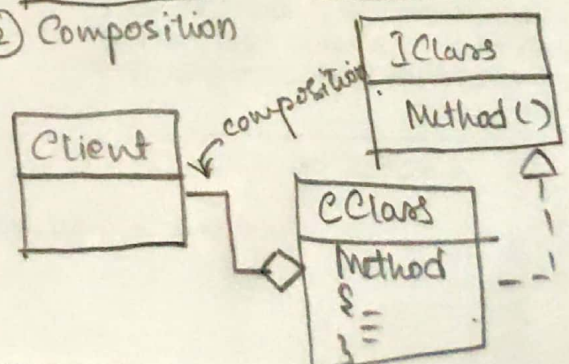 ② Composition
IClass
Method()
composition
Client
CClass
Method
{
}